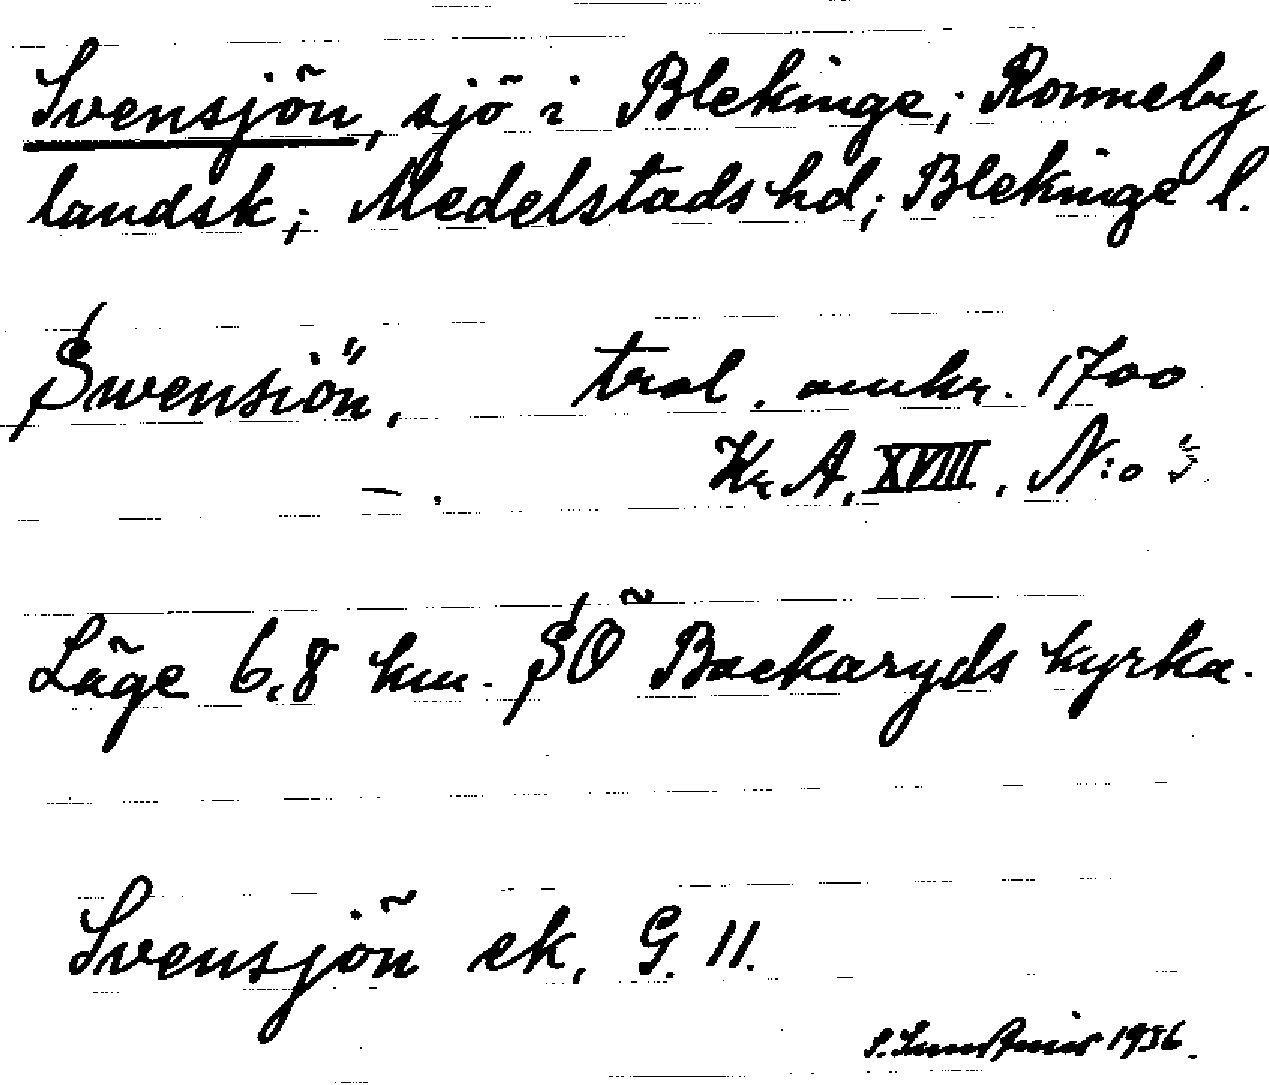 Svensjön, sjö i Blekinge; Ronneby
landsk; Medelstads hd; Blekinge l.
Swensiön, trol. omkr. 1700
— , Kr A, XVIII, N:o 3
Läge 6,8 km. SÖ Backaryds kyrka.
Svensjön ek, G. 11.
1936.